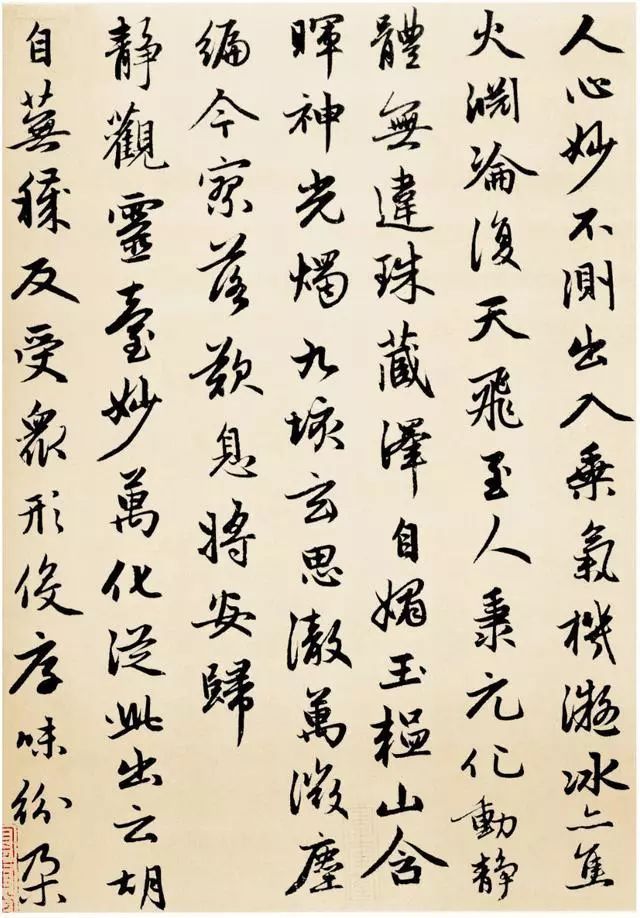 人心妙不測出入乗氣機凝冰亦焦
火淵淪復天飛至人秉元化動靜
體無違珠藏澤自媚玉韞山含
暉神光燭九垓玄思澈萬微塵
編今寥落歎息將安歸
靜觀靈臺妙萬化從此出云胡
自蕪穢反受衆形役厚味紛朶